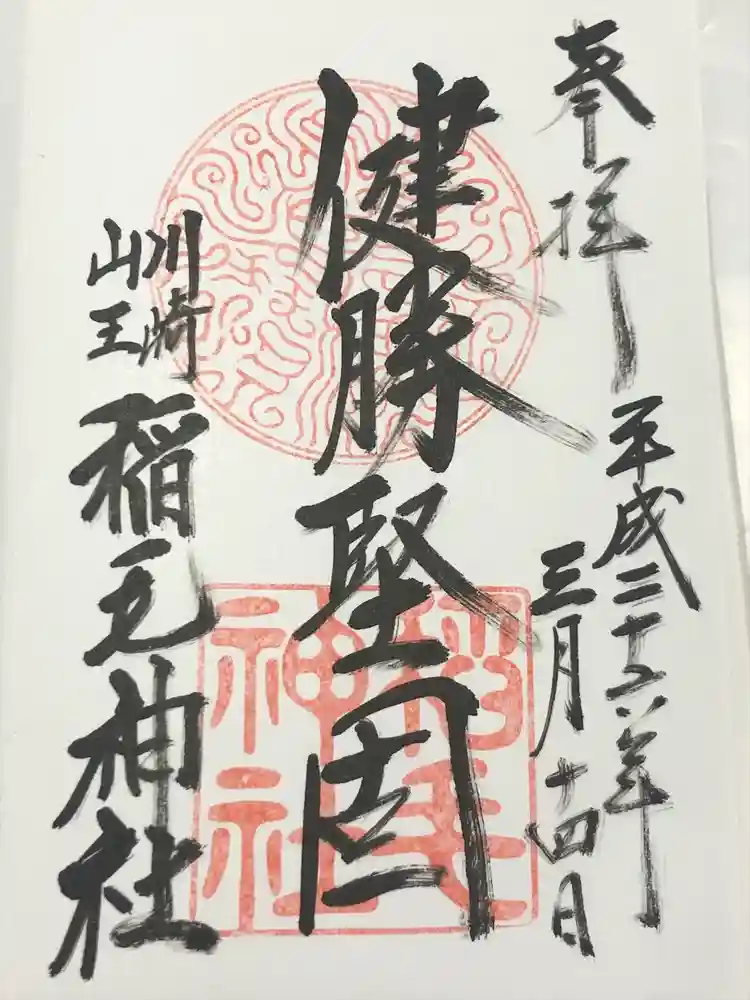 奉拝
平成二十六年
三月十四日
健勝堅固
川崎
山王
稲毛神社
稲毛
神社